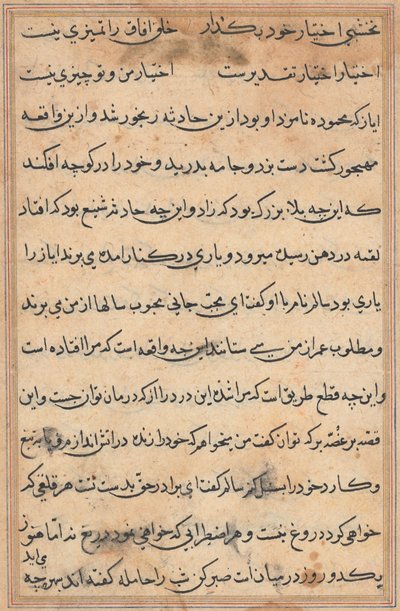 نخشبی اختیار خود بگذار خلق آفاق را تمیزی نیست
اختیار اختیار تقدیرست اختیار من و تو چیزی نیست
ایاز که محموده نامزد او بود ازین حادثه رنجور شد و ازین واقعه
مهجور کشت دست بزد و جامه بدرید و خود را در کوچه افکند
که این چه بلاء بزرک بود که زاد و این چه حادثه شنیع بود که افتاد
لقمه در دهن رسیده میرود و یاری در کنار آمده می برند ایاز را
یاری بود سالم نام با او کفت ای محب جانی محبوب سالها از من می برند
و مطلوب عمر از من می ستانند این چه واقعه است که مرا افتاده است
و این چه قطع طریق است که مرا شده این درد را از که درمان توان جست و این
قصه بر غصه بر که توان کفت من میخواهم که خود را زنده در آتش اندازم و یا به تیغ
و کارد خود را بسمل کنم سالم کفت ای برادر حق بدست تست هر قلقی که
خواهی کرد دروغ نیست و هر اضطرابی که خواهی نمود دریغ نه اما هنوز
یکدو روز در میان است صبر کن شب را حامله کفته اند ببین چه
می زاید